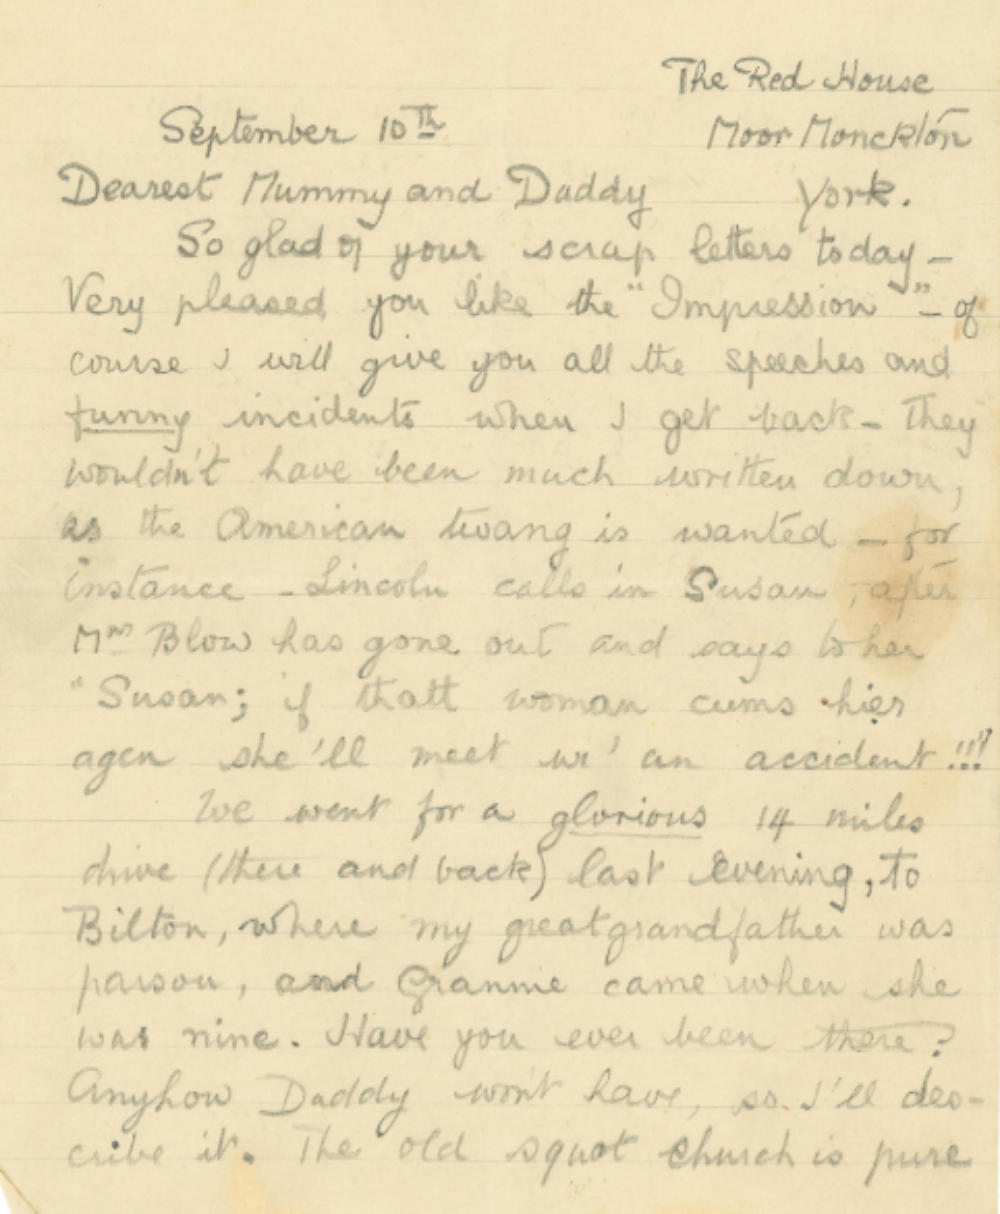 The Red House
September 10th
Moor Monckton
Dearest Mummy and Daddy
York.
So glad of your scrap letters today -
Very pleased you like the "Impression" - of
course I will give you all the speeches and
funny incidents when I get back - They
wouldn't have been much written down,
as the American twang is wanted - for
instance - Lincoln calls in Susan, after
Mrs Blow has gone out and says to her
"Susan; if thatt woman cums hier
agen she'll meet wi' an accident!!!"
We went for a glorious 14 miles
drive (there and back) last evening, to
Bilton, where my greatgrandfather was
parson, and Grannie came when she
was nine. Have you ever been there?
Anyhow Daddy won't have, so I'll des-
cribe it. The old squat church is pure